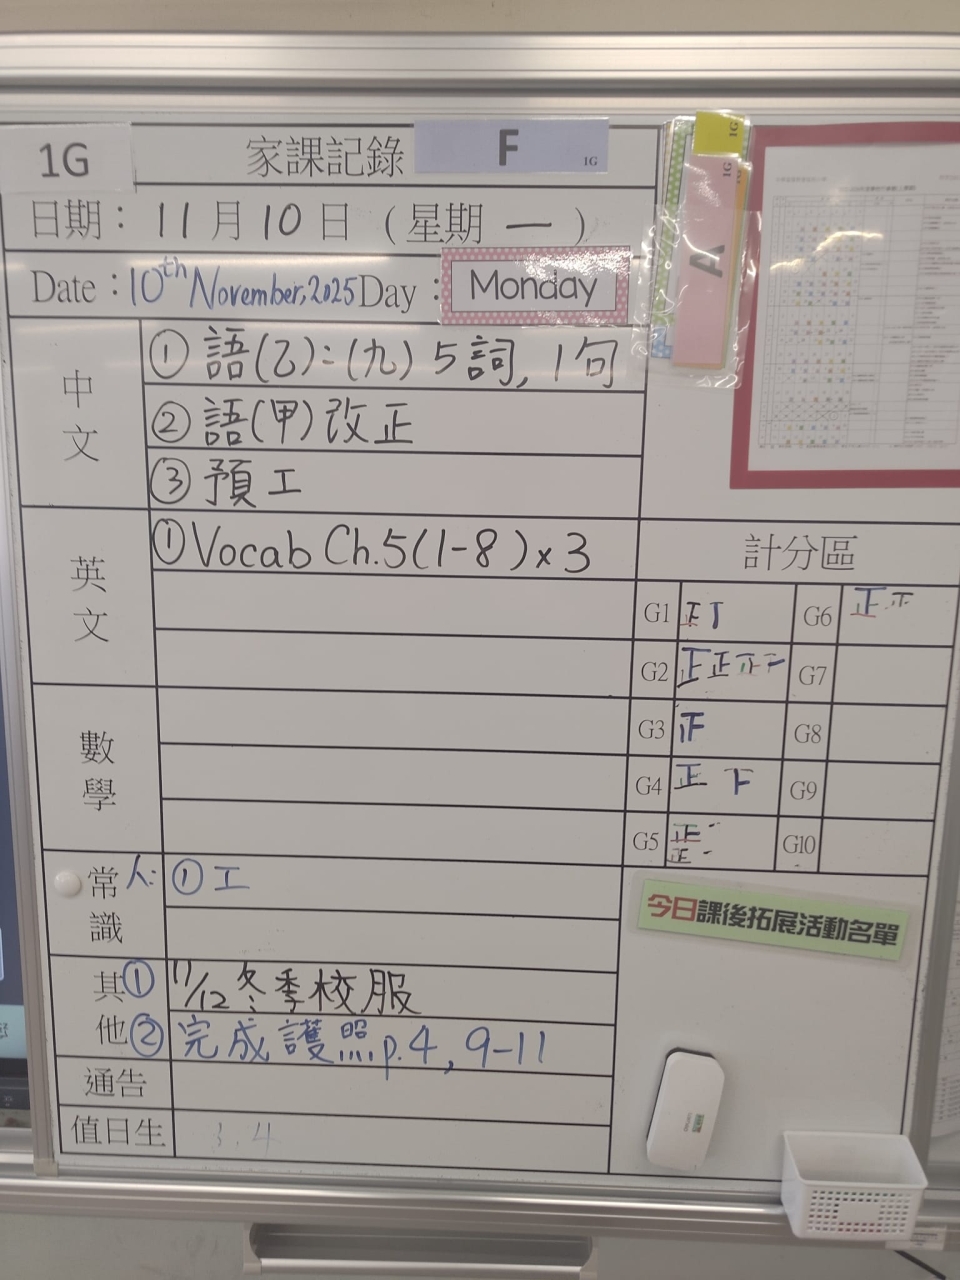 1G
家課記錄 F 1G
日期：11月10日（星期一）
Date：10th November, 2025 Day：Monday
中文
① 語(乙)：(九) 5詞, 1句
② 語(甲)改正
③ 預工
英文
① Vocab Ch.5(1-8)×3
數學
常識
人: ① 工
其他
① 11/12 冬季校服
② 完成護照p.4, 9-11
通告
值日生
3.4
1G
1G
A
計分區
G1 正丅
G6 正
G2 正正正
G7
G3
G8
G4 正
G9
G5 正
正
G10
今日課後拓展活動名單